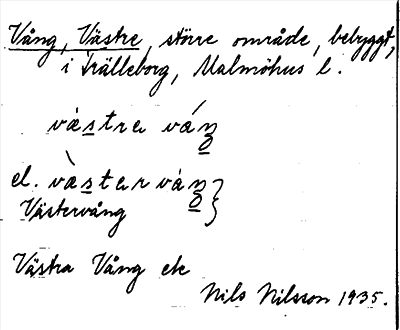 Vång, Västre, större område, bebyggt,
i Trälleborg, Malmöhus l.
væstra váŋ
el. væ̀stərváŋ
Västervång
Västra Vång etc
Nils Nilsson 1935.